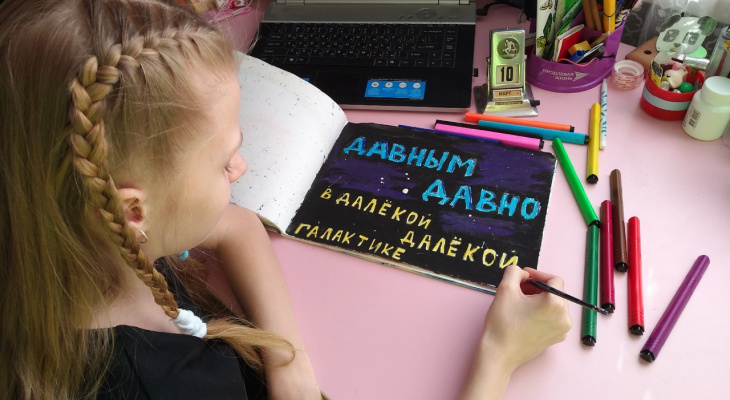 ДАВНЫМ
ДАВНО
В ДАЛЁКОЙ
ДАЛЁКОЙ
ГАЛАКТИКЕ
10
МАРТ